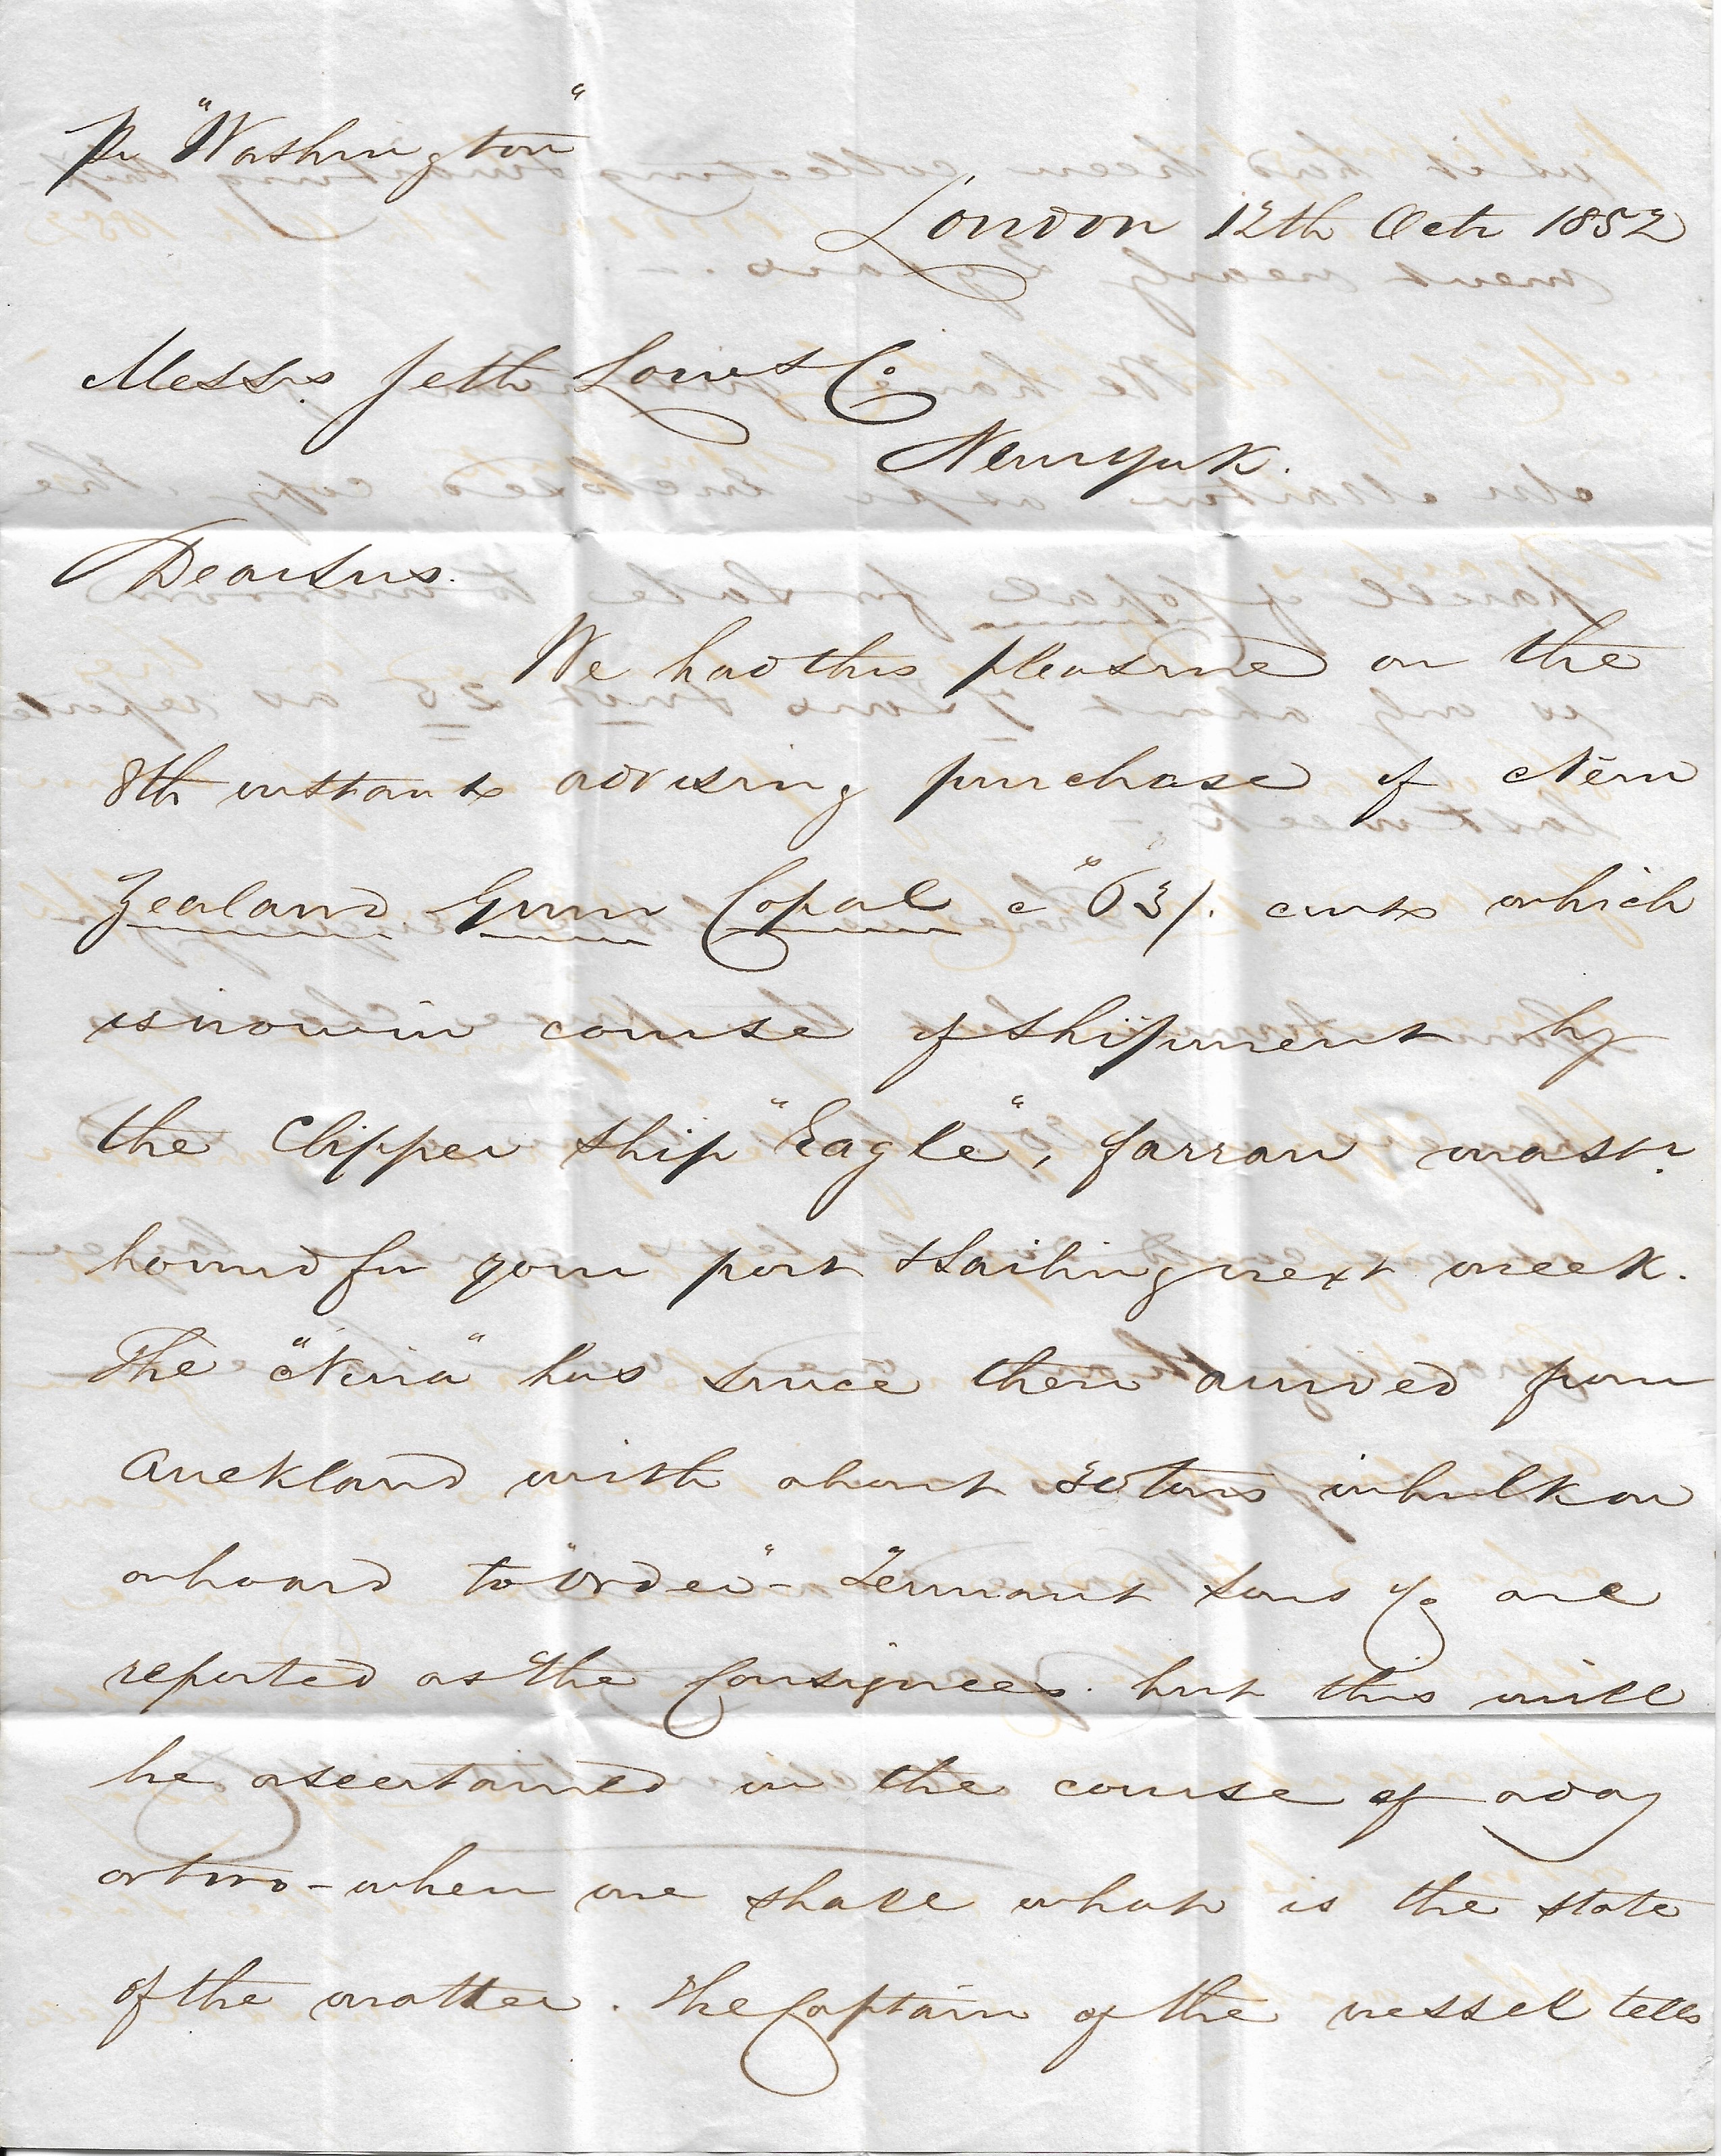 Pr "Washington"
London 12th Octr 1852
Messrs. Seth Low & Co
Newyork.
Dear Sirs.
We had this pleasure on the
8th instant advising purchase of New
Zealand Gum Copal cwts which
is now in course of shipment by
the Clipper Ship "Eagle", Farran mastr.
bound for your port & sailing next week.
The "Nina" has since then arrived from
Auckland with about 30 tons in bulk on
onboard to "order" - Tennant Sons & Co are
reported as the Consignees. but this will
be ascertained in the course of a day
or two - when we shall what is the state
of the matter. The Captain of the vessel tells